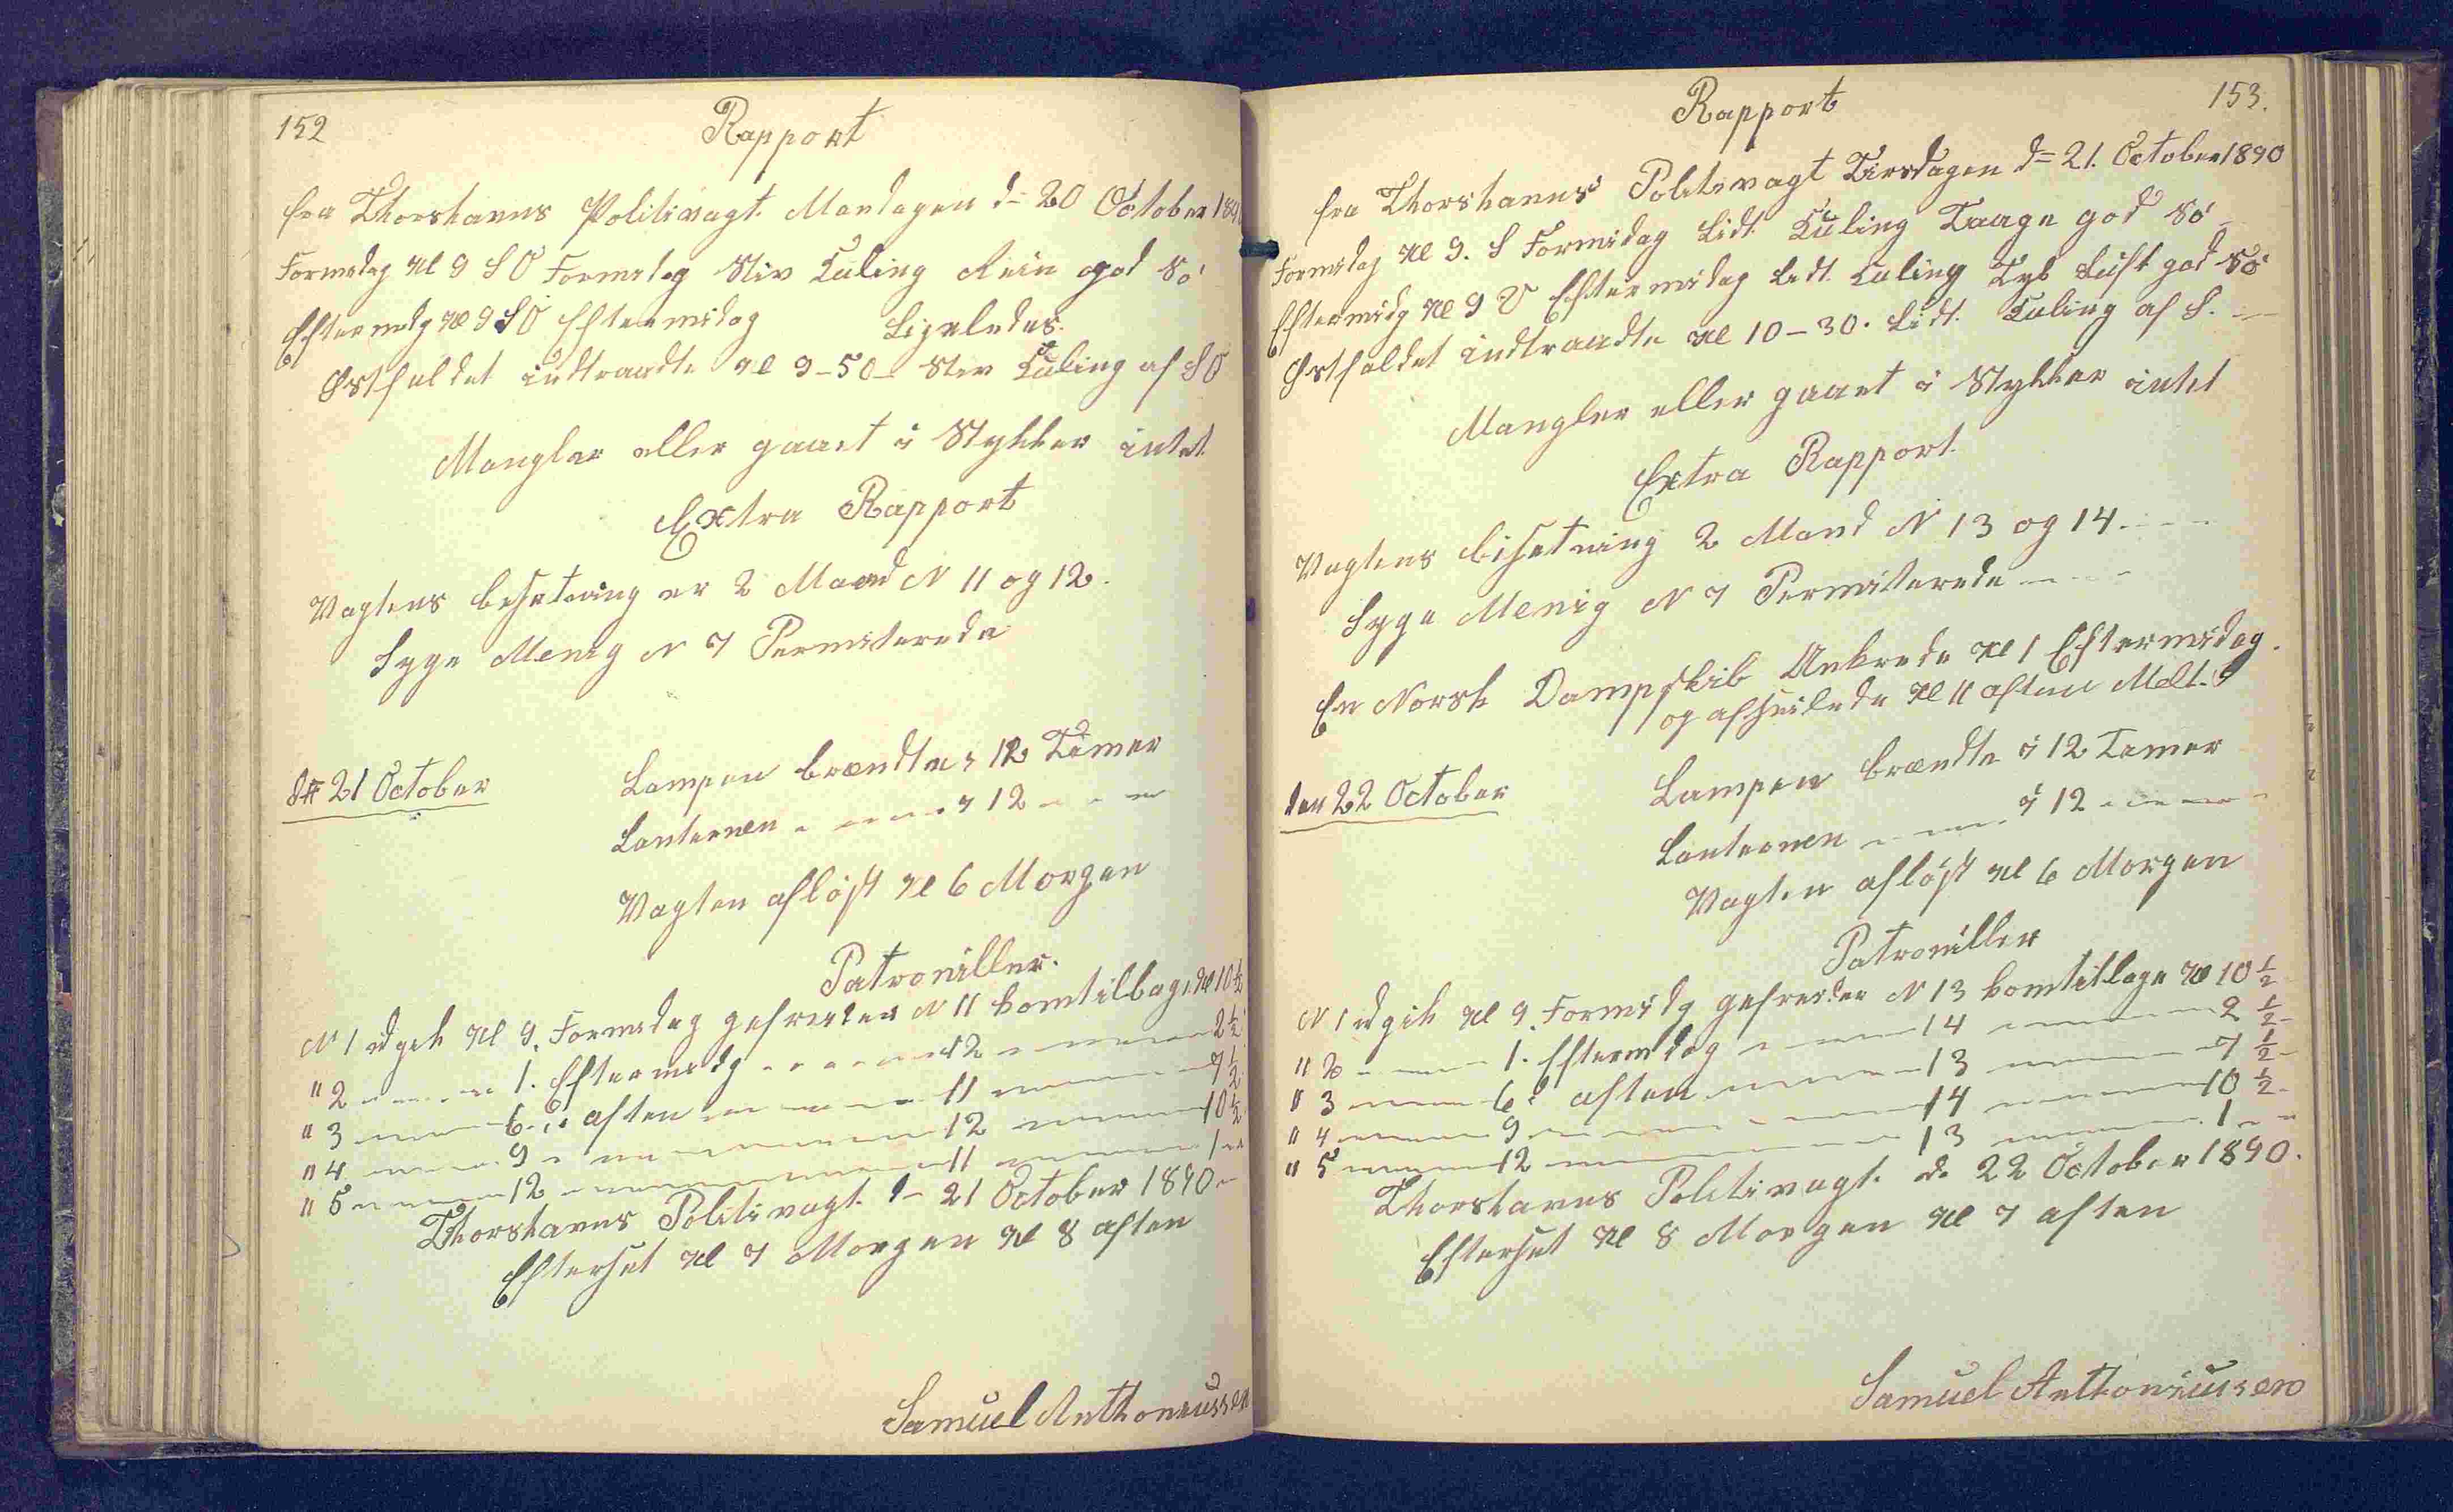 152
Rapport
fra Thorshavns Politivagt. Mandagen d= 20 October 189
Formdag Kl 9 SO Formidag Stiv Kuling Rein god Sö
Eftermdg Kl 9 SO Eftermidag Ligeledes.
Østfaldet indtraadte Kl 9-50- Stiv Kuling af SO
Mangler eller gaaet i Stykker intet
Extra Rapport
Vagtens besetning er 2 Mand N 11 og 12.
Syge Menig N 7 Permiterede
d= 21 October
Lampen brændte i 12 Timer
Lanternen - - - - i 12 - - -
Vagten afløst Kl 6 Morgen
Patroniller.
N 1 udgik Kl 9. Formdag gefreider N 11 komtilbage Kl 10½
" 2 - - - - 1. Eftermdg - - - - - 12 - - - - 2½
" 3 - - - - 6. i aften - - - - 11 - - - - 7½
" 4 - - - - 9 - - - - - - 12 - - - - 10½
" 5 - - - - 12 - - - - - - 11 - - - - 1 - -
Thorshavns Politivagt. d- 21 October 1890-
Efterset Kl 7 Morgen Kl 8 aften
Samuel Anthoniussen
153.
Rapport
fra Thorshavns Politivagt Tirsdagen d= 21. October 1890
Formidag Kl 9. S Formidag Lidt Kuling Taage god Sö
Eftermidg Kl 9 V Eftermidag Lidt Kuling Tyk Luft god Sö
Østfaldet indtraadte Kl 10-30. Lidt Kuling af S. - -
Mangler eller gaaet i Stykker intet
Extra Rapport
Vagtens besetning 2 Mand N 13 og 14. - - -
Syge Menig N 7 Permiterede - - -
En Norsk Dampskib Ankrede Kl 1 Eftermidag.
og afseilede Kl 11 aften
den 22 October
Lampen brændte i 12 Timer
Lanternen - - - i 12 - - - -
Vagten afløst Kl 6 Morgen
Patroniller
N 1 udgik Kl 9. Formidg gefreider N 13 komtilbage Kl 10½
" 2 - - - 1. Eftermdag - - - 14 - - - - 2½
" 3 - - - 6 i aften - - - - 13 - - - - 7½
" 4 - - - 9 - - - - - 14 - - - - 10½
" 5 - - - 12 - - - - - 13 - - - - 1 - -
Thorshavns Politivagt. d. 22 October 1890.
Efterset Kl 8 Morgen Kl 7 aften
Samuel Anthoniussen